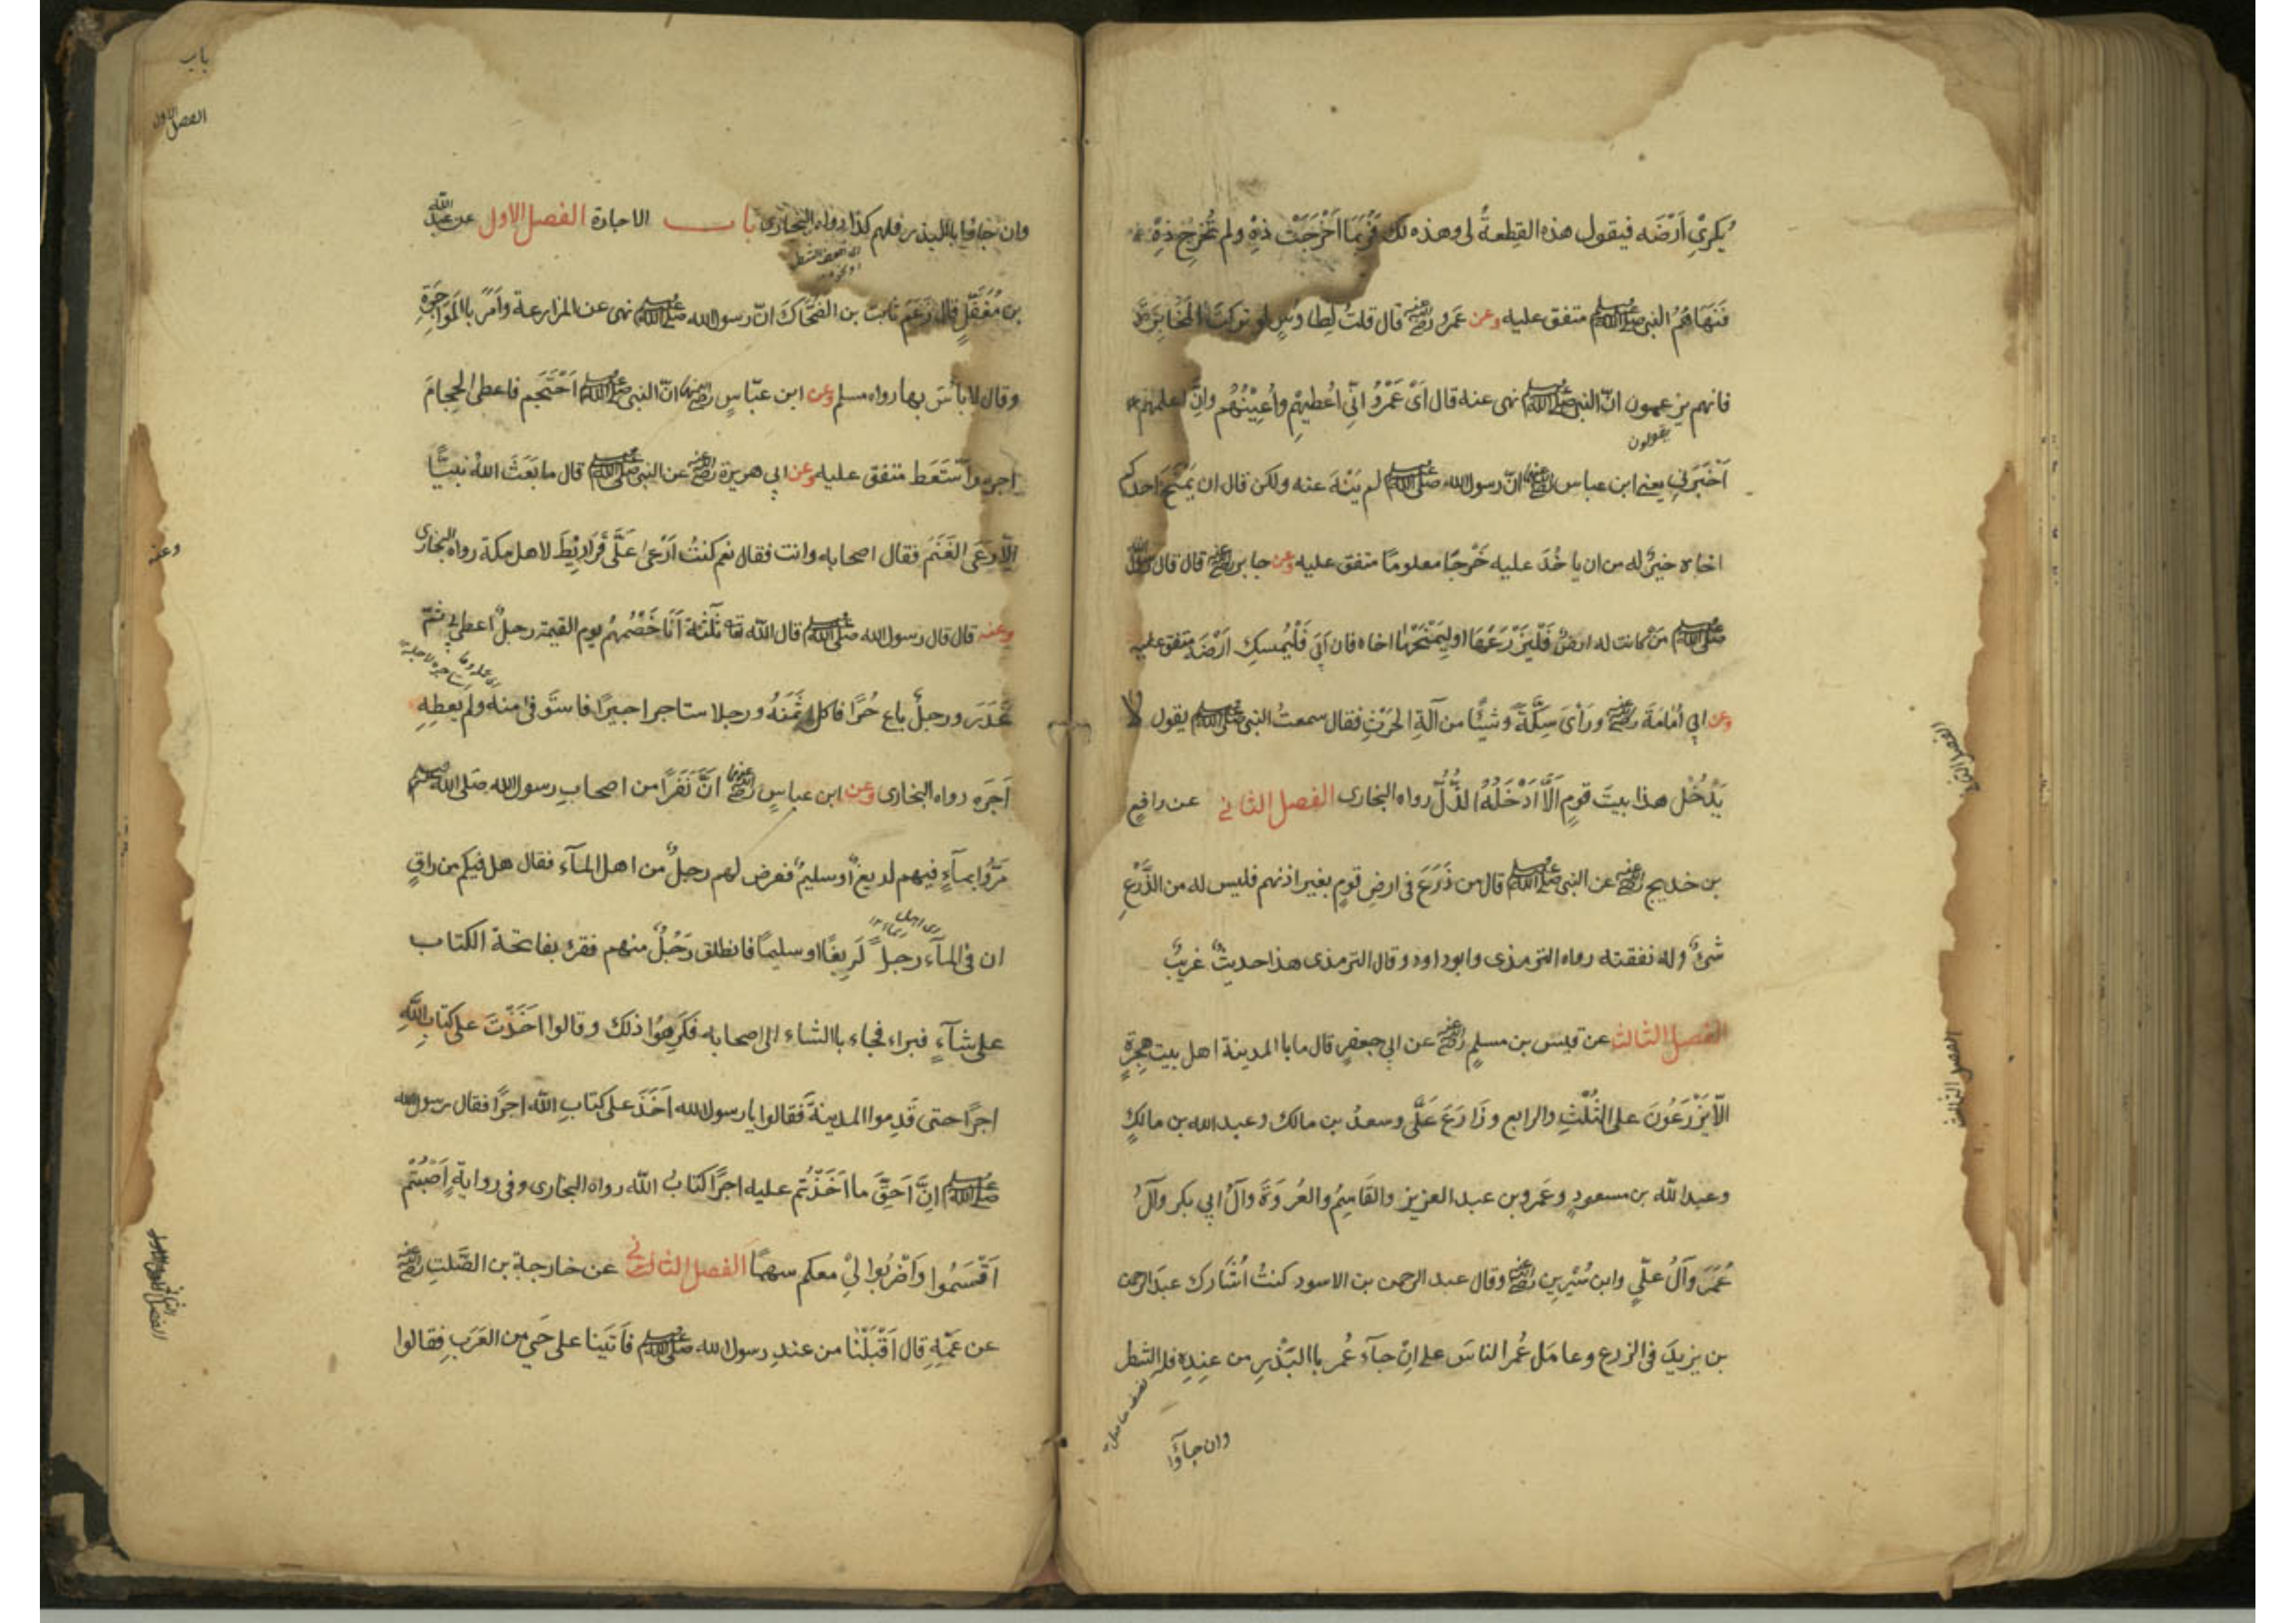 يُكرِي اَرْضَه فيقول هذه القِطعةُ لى وهذه لك فَرُبَمَا اَخْرَجَتْ ذِهْ ولم تُخرِج ذِهْ
فَنَهَاهُمُ النبى صلى الله عليه وسلم متفق عليه وعن عَمرو رضى الله عنه قال قلتُ لِطاوُسٍ لو تركتَ المُخابَرَةَ
فانهم يزعمون انّ النبى صلى الله عليه وسلم نهى عنه قال اَىْ عَمْرُو اِنِّى اُعْطِيْهِمْ واُعِيْنُهُم واِنَّ اعلمهم
يقولون
اَخْبَرَنِي يعنى ابن عباس رضى الله عنهما انّ رسول الله صلى الله عليه وسلم لم يَنْهَ عنه ولكن قال ان يَمْنَحَ احدكم
اخاه خيرٌ له من ان ياخُذَ عليه خَرْجًا معلومًا متفق عليه وعن جابر رضى الله عنه قال قال رسول الله
صلى الله عليه وسلم مَنْ كانت له ارضٌ فَلْيَزْرَعْهَا اولِيَمْنَحْهَا اخاه فان اَبَى فَلْيُمسِكْ اَرْضَه متفق عليه
وعن ابي اُمَامَةَ رضى الله عنه ورَأىَ سِكَّةً وشيئًا من آلَةِ الحَرْثِ فقال سمعتُ النبى صلى الله عليه وسلم يقول لا
يَدْخُلُ هذا بيتَ قومٍ اَلَّا اَدْخَلَهُ الذُّلَّ رواه البخارى الفصل الثاني عن رافعِ
بن خديج رضى الله عنه عن النبى صلى الله عليه وسلم قال من زَرَعَ فى ارضِ قومٍ بغير اذنهم فليس له من الزَّرْعِ
شئٌ وله نفقته رواه الترمذى وابوداود وقال الترمذى هذا حديثٌ غريبٌ
الفصل الثالث عن قيس بن مسلمٍ رضى الله عنه عن ابي جعفرٍ قال ما بالمدينة اهل بيت هجرةٍ
الّا يَزْرَعُونَ على الثُلُثِ والرابع وزَارَعَ عَلَّى وسعدُ بن مالك وعبد الله بن مالكٍ
وعبد الله بن مسعودٍ وعَمرو بن عبد العزيز والقَاسِمُ والعُروَةَ وآلُ ابي بكر وآلُ
عُمَرَ وآلُ علّيٍ وابن سُيْرِين رضى الله عنه وقال عبد الرحمن بن الاسود كنتُ اُشَارك عبدَ الرحمن
بن يزيدَ فى الزرع وعامَل عُمر الناسَ على اِنْ جآءَ عُمر باالبَذْرِ من عِندِه فله الشطر
وان جآؤا
الفصل الثانى
الفصل الثالث
باب
الفصل الاول
وان جاؤا باالبذر فلهم كذا رواه البخارى باب الاجارة الفصل الاول عن عبد الله
بن مُغَفَّلٍ قال زَعَمَ ثابت بن الضَّحَّاكَ انّ رسول الله صلى الله عليه وسلم نهى عن المزارعة واَمَرَ باالمَوَاجَرَةِ
وقال لا بأسَ بها رواه مسلم وعن ابن عبّاسٍ رضى الله عنهما انّ النبى صلى الله عليه وسلم اَحْتَجَم فاعطى الحجامَ
اجره واَسْتَعَط متفق عليه وعن ابي هريرة رضى الله عنه عن النبى صلى الله عليه وسلم قال ما بَعَثَ اللهُ نبيًّا
اِلّا رَعَى الغَنَمَ فقال اصحابه وانت فقال نعم كنتُ اَرْعى عَلَى قَرَارِيْطَ لاهل مكة رواه البخارى
وعنه
وعنه قال قال رسول الله صلى الله عليه وسلم قال الله تعا ثَلٰثَة اَنَا خَصْمُهُم يوم القيمة رجلٌ اعطى بي ثمّ
غَدَرَ ورجلٌ باع حُرًّا فاكل ثَمَنَهُ ورجلا ستاجر اجيرًا فاستَوفى منه ولم يُعطِهِ
اَجرَه رواه البخارى وعن ابن عباسٍ رضى الله عنهما اَنَّ نَفَرًا من اصحابِ رسول الله صلى الله عليه وسلم
مَرُّوا بمآءٍ فيهم لديغٌ اوسليمٌ فعرض لهم رجلٌ من اهل المآء فقال هل فيكم من راقٍ
ان فى المآء رجلً لَدِيغًا اوسليمًا فانطلق رَجُلٌ منهم فقرء بفاتحة الكتاب
على شآءٍ فبراء فجاء باالشاء الى اصحابه فكَرِهوُا ذلك وقالوا اَخَذْتَ على كتابِ اللهِ
اجرًا حتى قَدِموا المدينةَ فقالوا يا رسول الله اَخَذَ على كتابِ الله اجرًا فقال رسول الله
صلى الله عليه وسلم اِنَّ اَحَقَّ ما اَخَذْتُم عليه اجرًا كتابُ الله رواه البخارى وفى روايةٍ اَصَبْتُمْ
اَقْسَمُوا وَاَضْرِبُوا لِيْ معكم سهمًا الفصل الثانى عن خارجة بن الصَّلتِ رضى الله عنه
الفصل الثانى
عن عَمِّهِ قال اَقْبَلْنا من عندِ رسول الله صلى الله عليه وسلم فاَتَينا على حَيٍ من العَرَبِ فقالوا